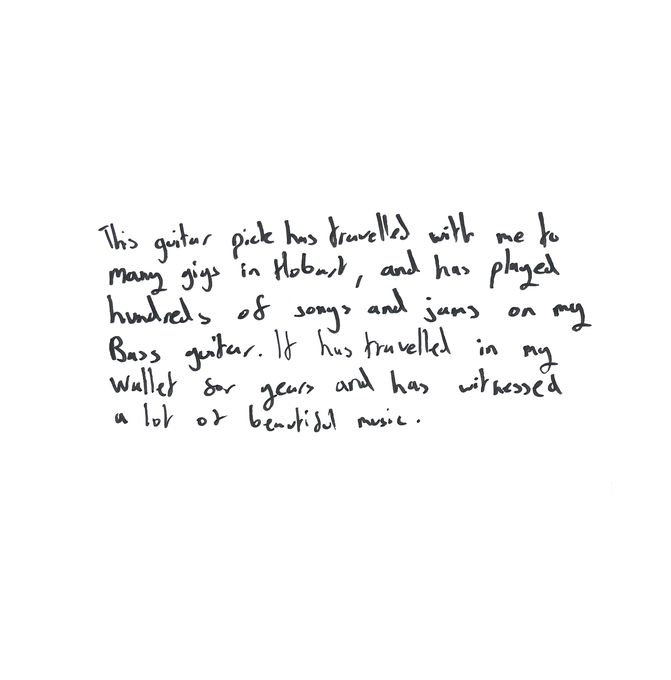 This guitar pick has travelled with me to
many gigs in Hobart, and has played
hundreds of songs and jams on my
Bass guitar. It has travelled in my
Wallet for years and has witnessed
a lot of beautiful music.